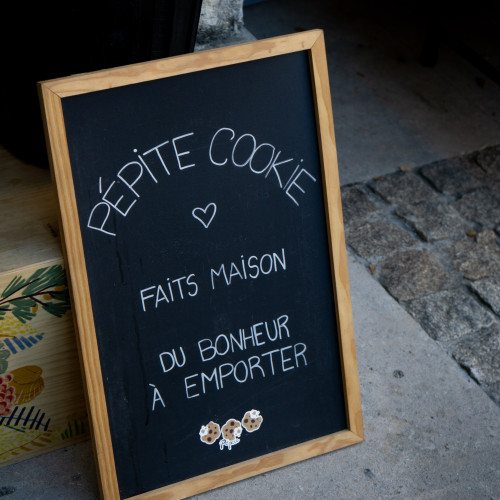 PÉPITE COOKIE
FAITS MAISON
DU BONHEUR
À EMPORTER